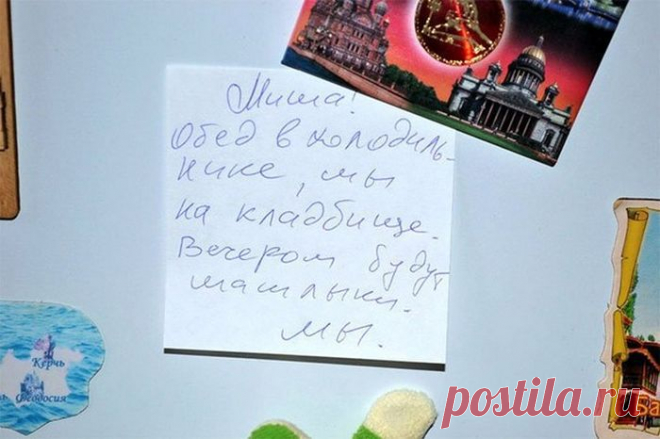 Миша!
Обед в холодиль-
нике, мы
на кладбище.
Вечером будут
шашлыки.
мы.
Керчь
Феодосия
postila.ru